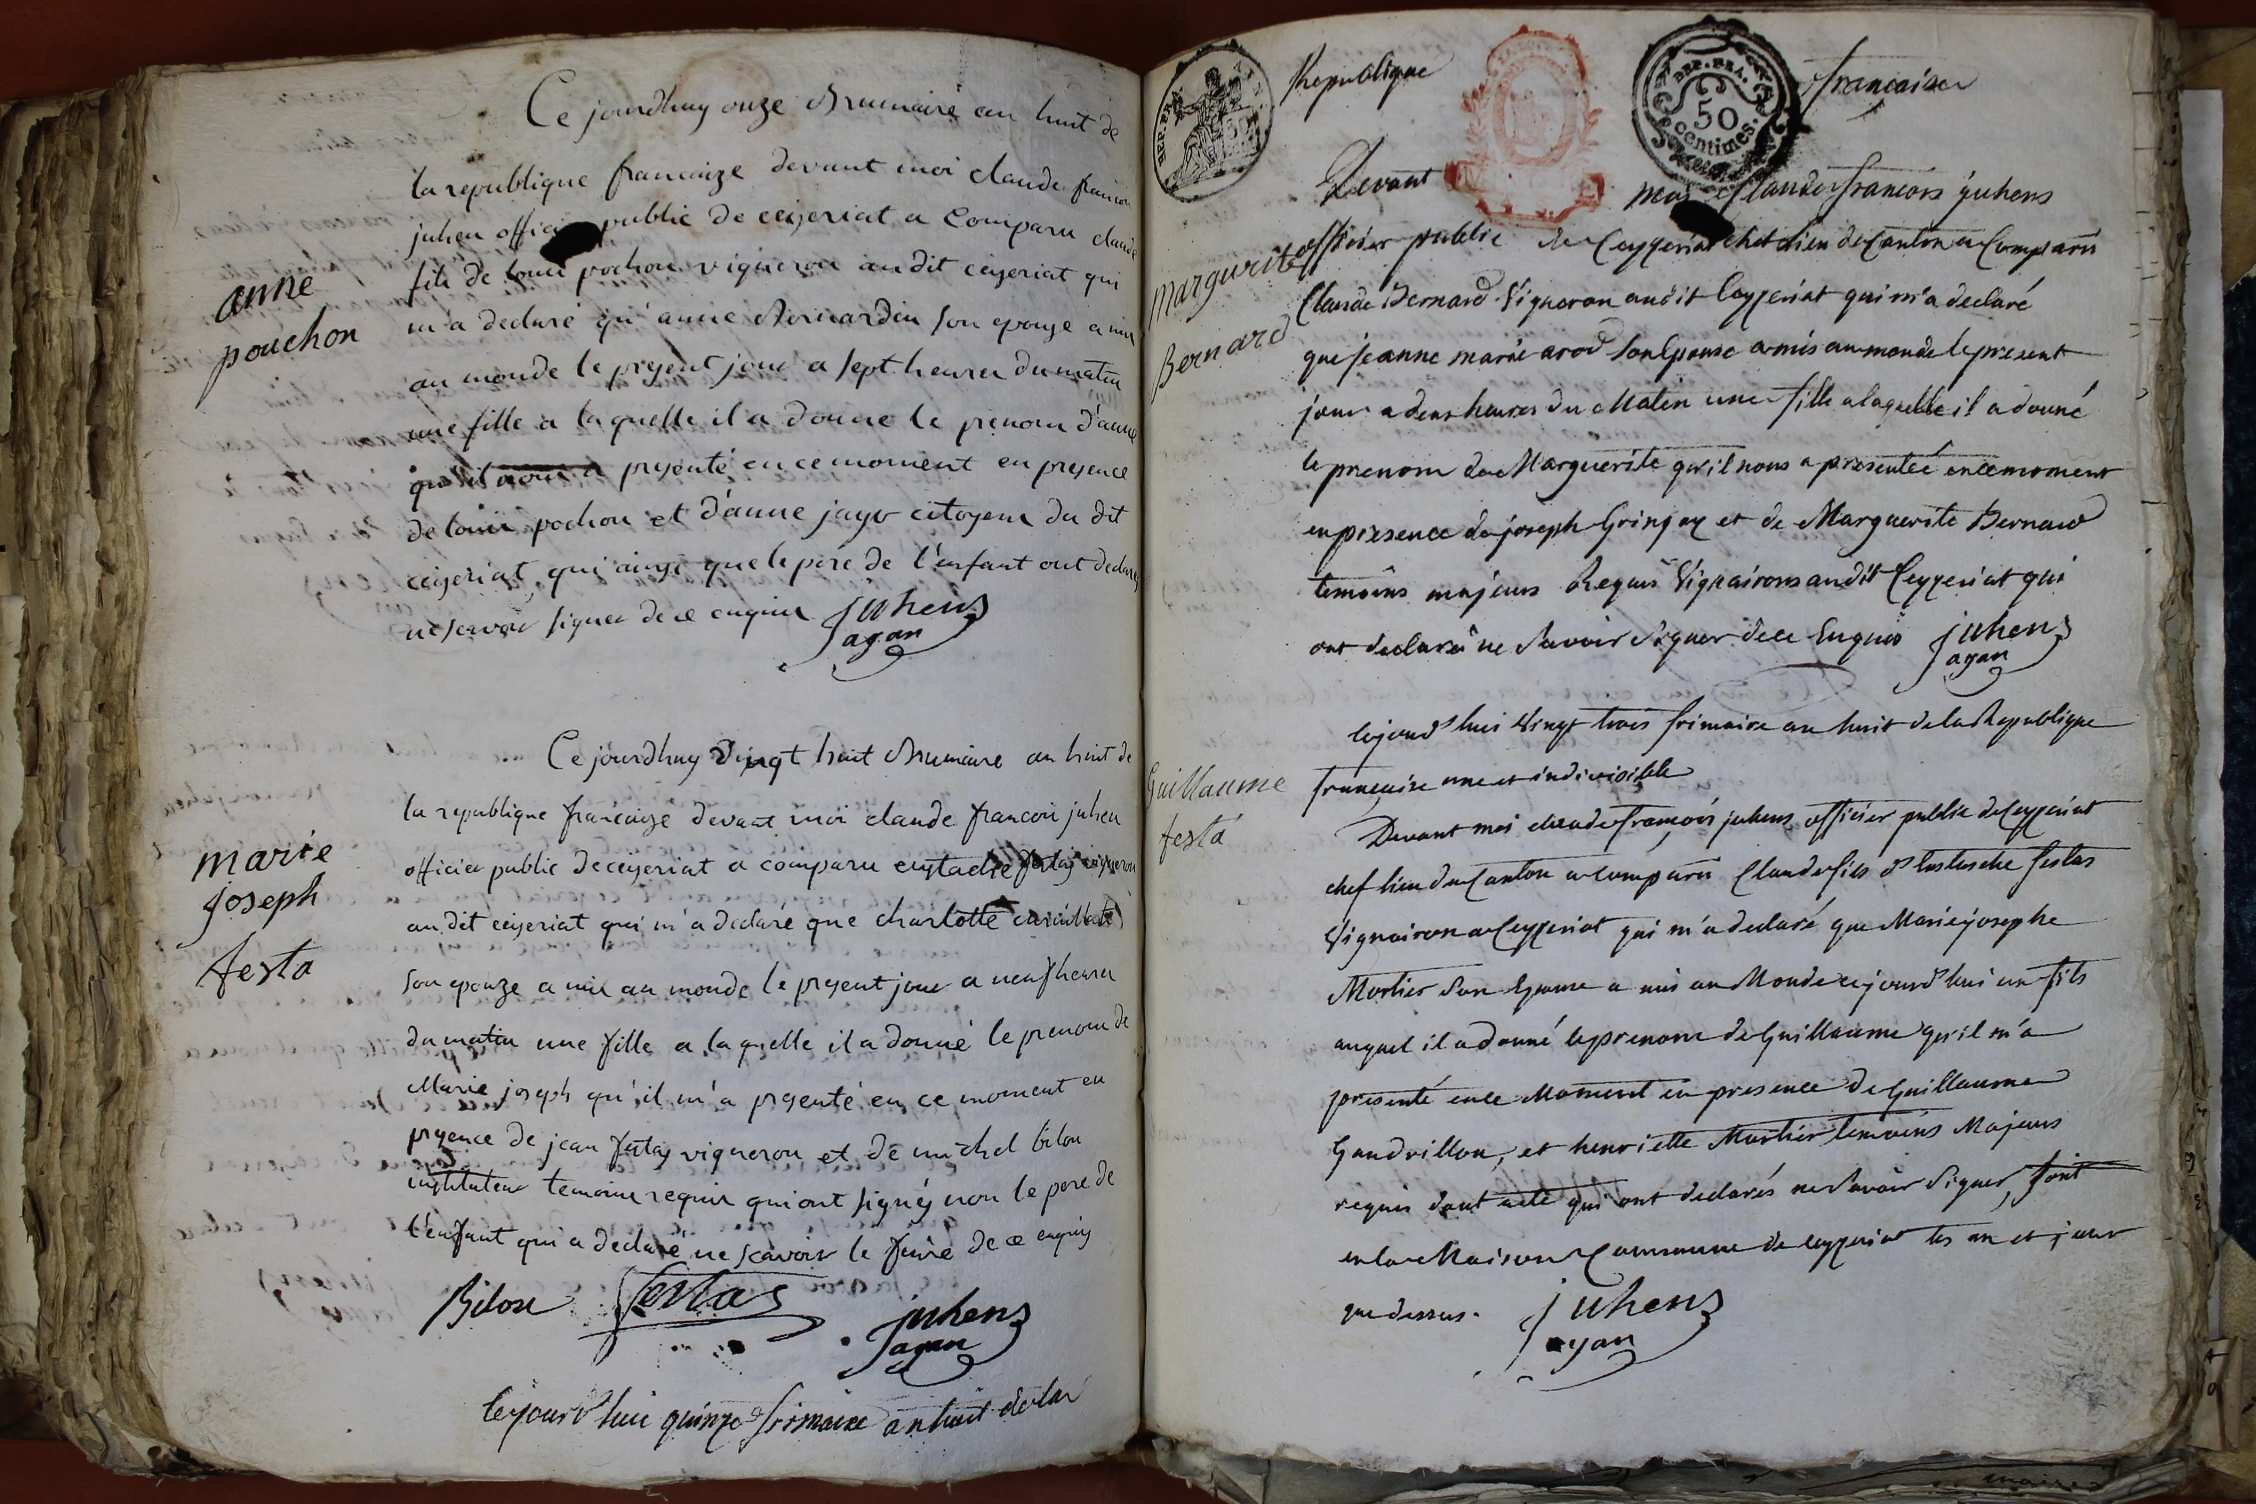 Ce jourdhuy onze Brumaire an huit de
la republique francaize devant moi claude francoi
juhen officier public de ceyzeriat a Comparu claude
fils de louis pochon vigneron au dit ceyzeriat qui
m'a declaré qu'anne Bernardin son epouze a mis
au monde le present jour a sept heures du matin
une fille a laquelle il a donne le prenom d'anne
qu'il presenté en ce moment en presence
de louis pochon et d'anne jayr citoyens du dit
ceyzeriat qui ainsi que le pere de l'enfant ont declarez
ne scavoir signer de ce enquis juhens
agan
anne
pouchon
Ce jourdhuy vingt huit Brumaire an huit de
la republique francaize devant moi claude francoi juhen
officier public de ceyzeriat a comparu eustache festas vigneron
au dit ceyzeriat qui m'a declaré que charlotte
son epouze a mis au monde le present jour a neuf heures
du matin une fille a laquelle il a donné le prenom de
Marie joseph qu'il m'a presenté en ce moment en
presence de jean festas vigneron et de michel bilon
instituteur temoins requis qui ont signés non le pere de
l'enfant qui a declaré ne scavoir le faire de ce enquis
marie
joseph
festa
Bilon festas juhens
agan
Cejourd'hui quinze frimaire an huit de la
Republique francaise
REP. FRA.
REP. FRA.
50
centimes.
Devant moi Claude francois juhens
officier public de Ceyzeriat chef lieu de Canton a Comparu
Claude Bernard Vigneron audit Ceyzeriat qui m'a declaré
que jeanne marie arod son Epouse a mis au monde le present
jour a deux heures du Matin une fille a laquelle il a donné
le prenom de Marguerite qu'il nous a presenteé en ce moment
en presence de joseph Gringoz et de Marguerite Bernard
temoins majeurs Requis Vignairons audit Ceyzeriat qui
ont declaré ne Savoir Signer de ce Enquis juhens
agan
Margurite
Bernard
Cejourd'hui Vingt trois frimaire an huit de la Republique
francaise une et indivisible
Devant moi claude francois juhens officier public de Ceyzeriat
chef lieu de Canton a comparu Claude fils d'Eustache festas
Vignairon a Ceyzeriat qui m'a declaré que Marie josephe
Mortier Son Epouse a mis au Monde cejourd'hui un fils
auquel il a donné le prenom de Guillaume qu'il m'a
presenté en ce Moment en presence de Guillaume
Gandrillon, et henriette Mortier temoins Majeurs
requis dont acte qui ont declarés ne Savoir Signer, fait
en la Maison Commune de ceyzeriat les an et jour
que dessus. juhens
agan
Guillaume
festa